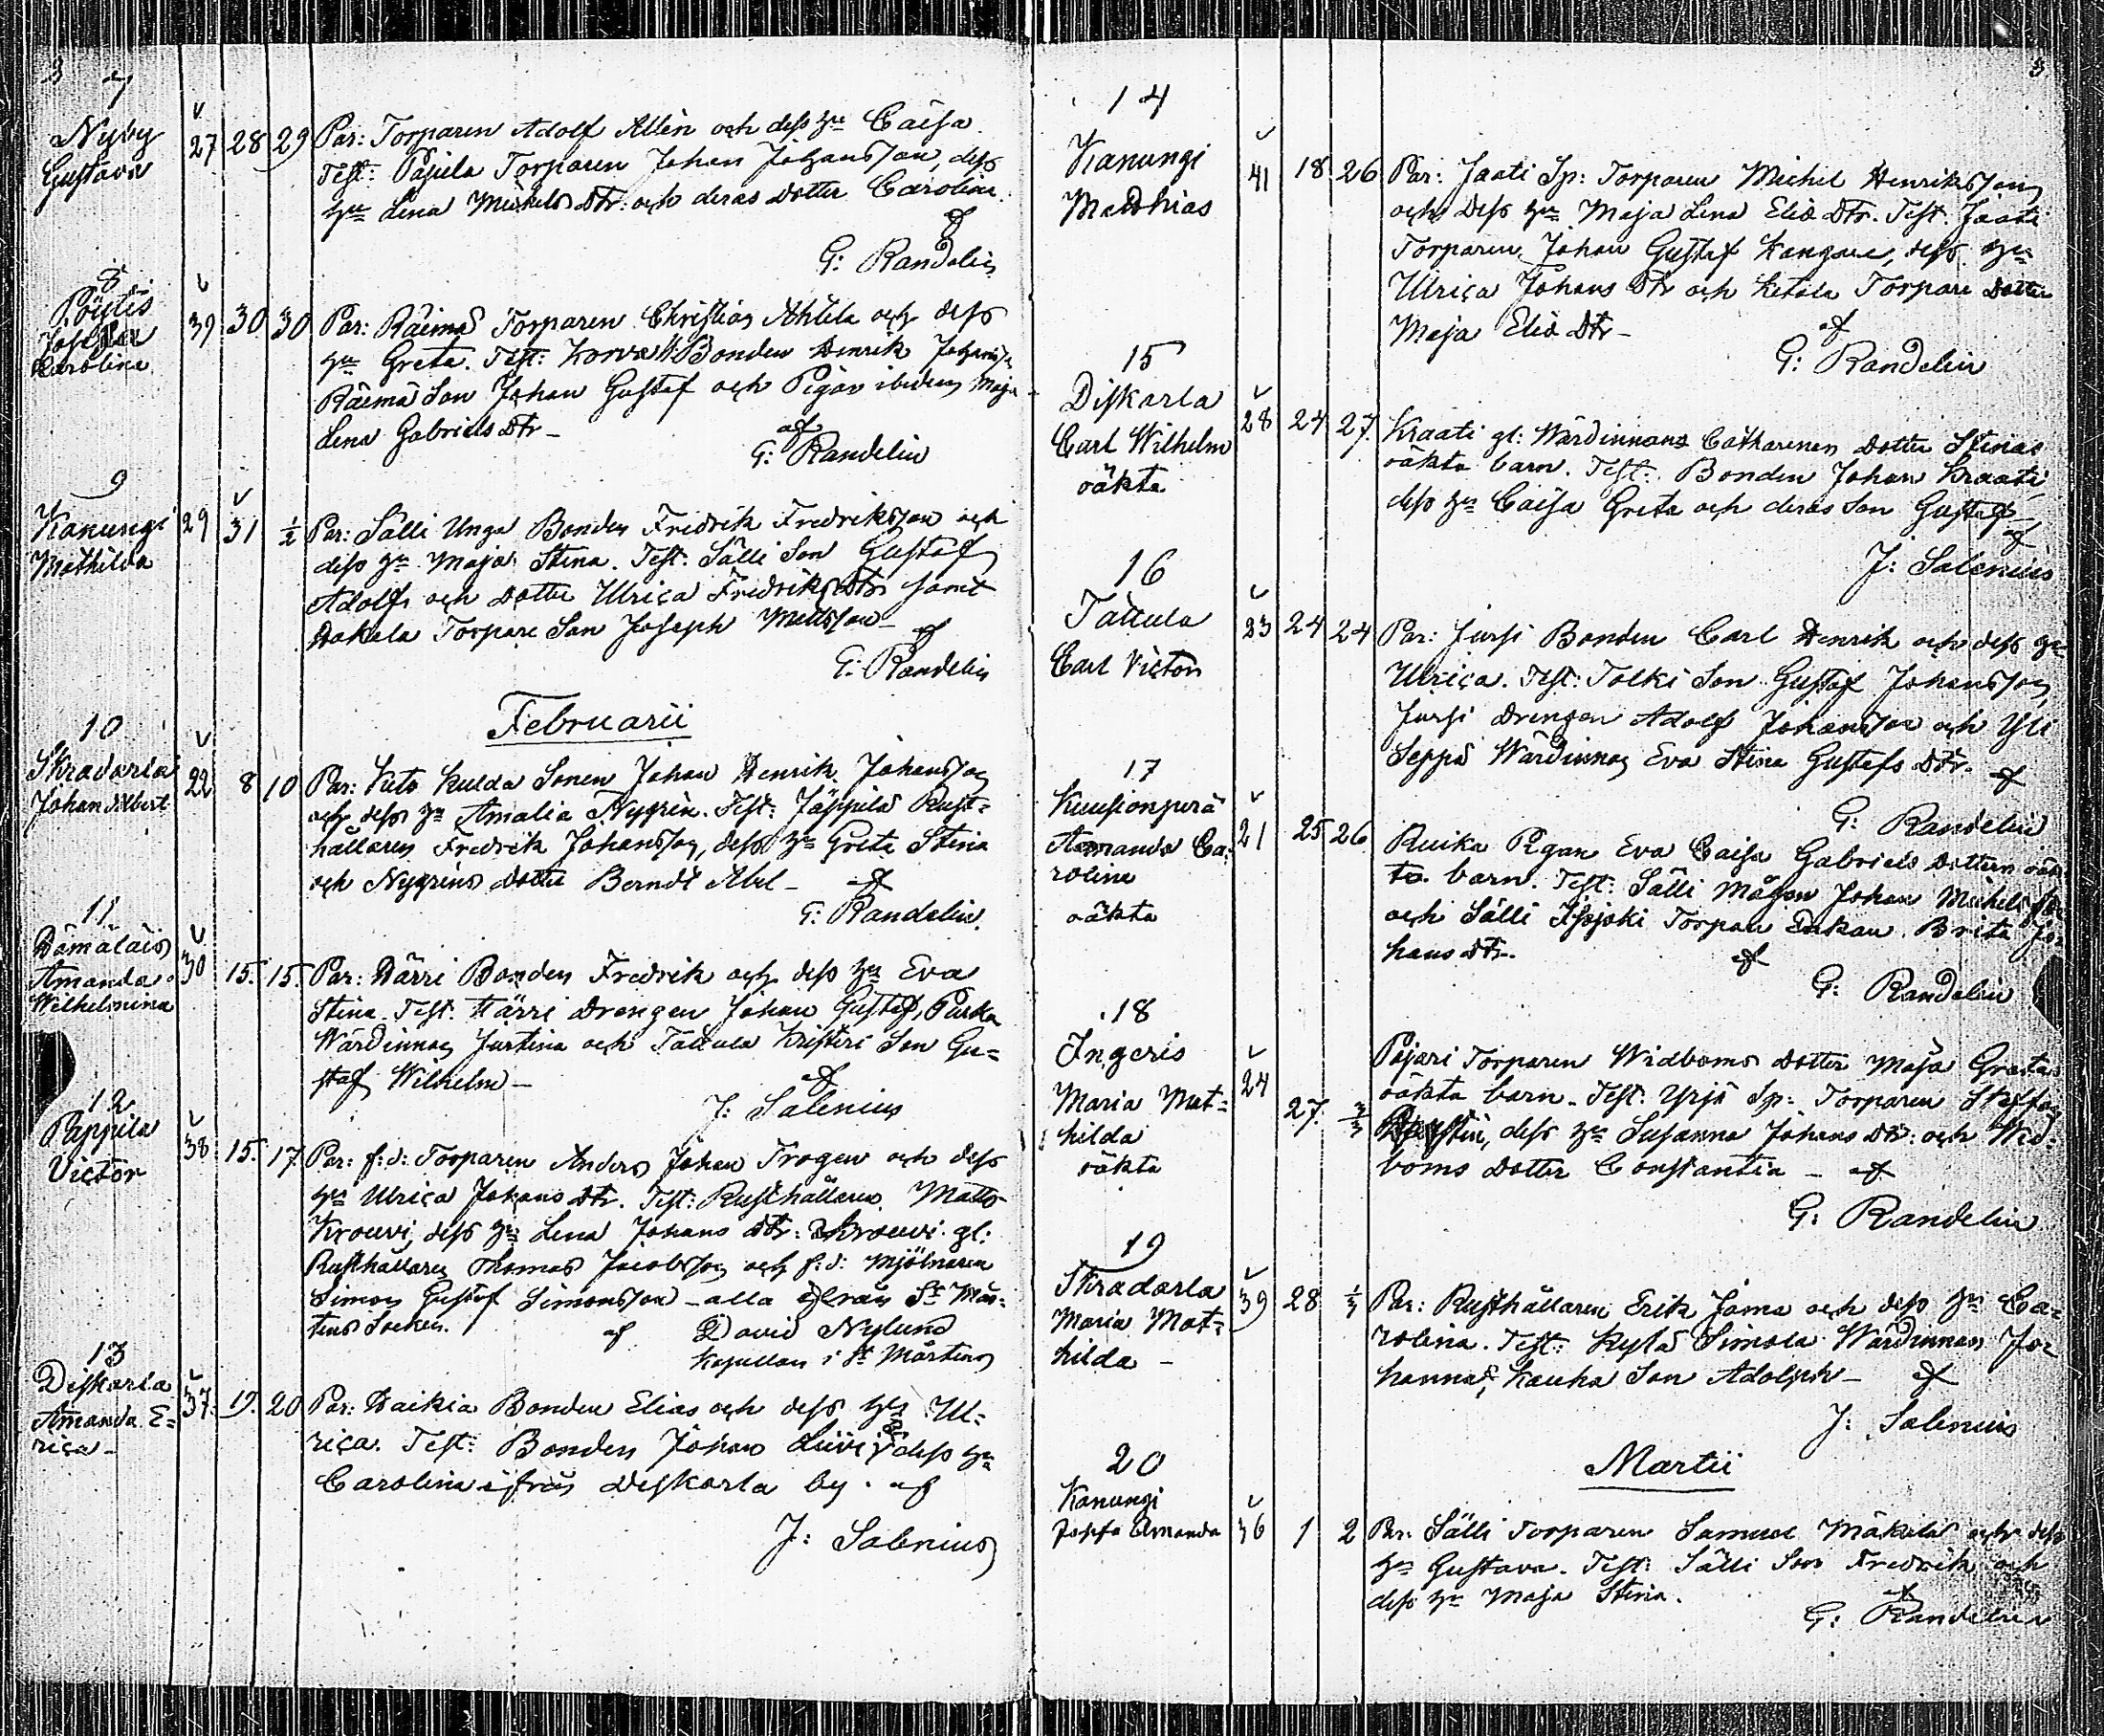 7
Nyby
Gustava
27 28 29 Par: Torparen Adolf Allén och dess hu Caisa
Test: Pajula Torparen Johan Johansson, dess
hu Lena Michels Dtr: och deras Dotter Carolina.
af
G: Randelin
8
Pöytis
Josefa
Karolina
39 30 30 Par: Räimä Torparen Christian Ahlela och dess
hu Greta. Test: Korva Bonden Henrik
Räimä Son Johan Gustaf och Pigan ibidem Maja
Lena Gabriels Dtr –
af
G: Randelin
9
Kanungi
Mathilda
29 31 1/2 Par: Sälli Unga Bonden Fredrik Fredriksson och
dess hu Maja Stina. Test: Sälli Son Gustaf
Adolf och Dotter Ulrica Fredriks Dtr samt
Hakala Torpare Son Joseph Mattsson – af
G: Randelin
Februarii
10
Skradarla
Johan Albert
22 8 10 Par: Kulda Sonen Johan Henrik Johansson
och dess hu Amalia Nygrén. Test: Jäppilä Rust=
hållaren Fredrik Johansson, dess hu Greta Stina
och Nygréns dotter Berndt Abel – af
G: Randelin.
11
Hämäläis
Amanda
Wilhelmina
30 15. 15. Par: Härri Bonden Fredrik och dess hu Eva
Stina. Test: Härri Drengen Johan Gustaf, Purka
Wärdinnan Justina och Tattula Kristeri Son Gu=
staf Wilhelm –
af
J: Salenius
12
Päppilä
Victor
38 15. 17 Par: f:d: Torparen Anders Johan Frogen och dess
hu Ulrica Johans Dtr. Test: Rusthållaren Matts
Krouvi, dess hu Lena Johans Dtr: Krouvi gl:
Rusthållaren Thomas Jacobsson och f:d: Mjölnaren
Simon Gustaf Simonsson – alla ifrån St Mår=
tens Socken.
af David Nylund
Kapellan i St Mårtens
13
Diskarla
Amanda E=
rica –
37 19. 20 Par: Haikia Bonden Elias och dess hu Ul=
rica. Test: Bonden Johan dess hu
Carolina ifrån Diskarla by. af
J: Salenius
14
Kanungi
Matthias
41 18 26 Par: Jaati Sp: Torparen Michel Henriksson
och dess hu Maja Lena Elis Dtr. Test. Jaati
Torparen Johan Gustaf Kangare, dess hu
Ulrica Johans Dtr och Ketola Torpare Dotter
Maja Elis Dtr –
af
G: Randelin
15
Diskarla
Carl Wilhelm
oäkta
28 24 27. Kraati gl: Wärdinnans Catharinas Dotter Stinas
oäkta barn. Test: Bonden Johan Kraati,
dess hu Caisa Greta och deras Son Gustaf –
af
J: Salenius
16
Tattula
Carl Victor
23 24 24 Par: Jursi Bonden Carl Henrik och dess hu
Ulrica. Test: Tolki Son Gustaf Johansson
Jursi Drengen Adolf Johansson och Yli
Seppä Wärdinnan Eva Stina Gustafs Dtr. af
G: Randelin
17
Kuusionperä
Amanda Ca=
rolina
oäkta
21 25 26 Ruika Pigan Eva Caisa Gabriels Dotters oäk
ta barn. Test: Sälli Mågen Johan Michelsson
och Sälli Isojoki Torpare Enkan Brita Jo=
hans Dtr.
af
G: Randelin
18
Ingeris
Maria Mat=
hilda
oäkta
24 27. 3/3 Pajari Torparen Widboms dotter Maja Gretas
oäkta barn. Test: Yrjä Sp: Torparen
dess hu Susanna Johans Dtr: och Wid=
boms Dotter Constantia – af
G: Randelin
19
Skradarla
Maria Mat=
hilda –
39 28 1/3 Par: Rusthållaren Erik Jama och dess hu Ca=
rolina. Test: Kylä Simola Wärdinnan Jo=
hanna, Kauha Son Adolph – af
J: Salenius
Martii
20
Kanungi
Josefa Amanda
36 1 2 Par: Sälli Torparen Samuel Mäkelä och dess
hu Gustava. Test: Sälli Son Fredrik och
dess hu Maja Stina.
af
G: Randelin